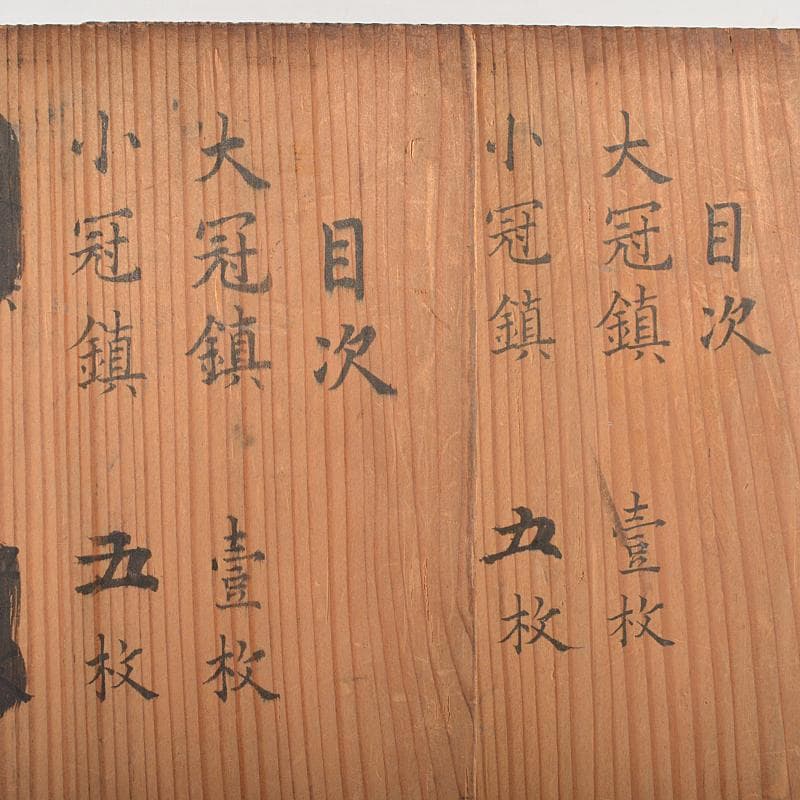 目次
大冠鎮 壹枚
小冠鎮 五枚
目次
大冠鎮 壹枚
小冠鎮 五枚